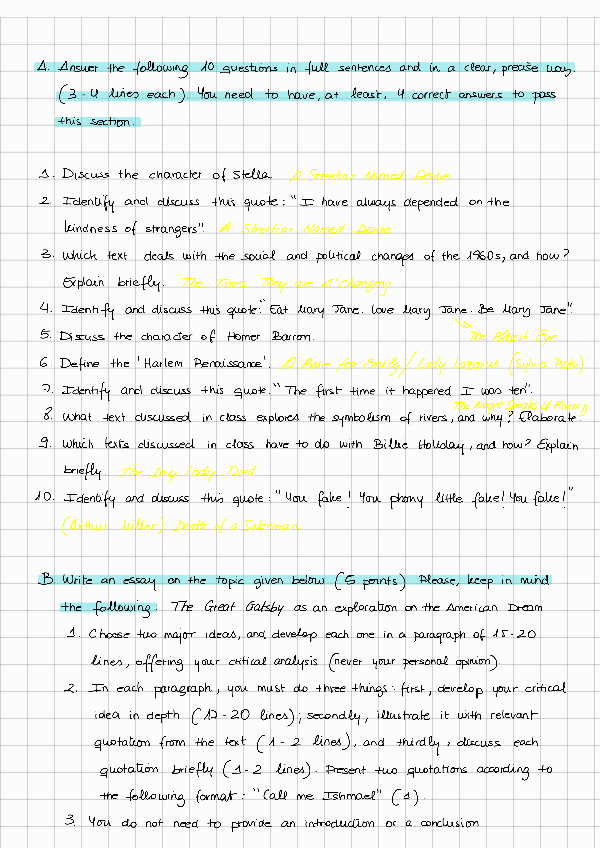 A. Answer the following 10 questions in full sentences and in a clear, precise way.
(3-4 lines each) You need to have, at least, 4 correct answers to pass
this section.
1. Discuss the character of Stella A Streetcar Named Desire
2. Identify and discuss this quote: "I have always depended on the
kindness of strangers". A Streetcar Named Desire
3. Which text deals with the social and political changes of the 1960s, and how?
Explain briefly. The Times They are A'Changing
4. Identify and discuss this quote: "Eat Mary Jane. Love Mary Jane. Be Mary Jane".
5. Discuss the character of Homer Barron. The Bluest Eye
6 Define the 'Harlem Renaissance'. A Rose for Emily / Lady Lazarus (Sylvia Plath)
7. Identify and discuss this quote. "The first time it happened I was ten".
The Negro Speaks of Rivers
8. What text discussed in class explores the symbolism of rivers, and why? Elaborate
9. Which texts discussed in class have to do with Billie Holiday, and how? Explain
briefly. The Day Lady Died
10. Identify and discuss this quote: "You fake! You phony little fake! You fake!"
(Arthur Miller) Death of a Salesman
B Write an essay on the topic given below (5 points) Please, keep in mind
the following: The Great Gatsby as an exploration on the American Dream
1. Choose two major ideas, and develop each one in a paragraph of 15-20
lines, offering your critical analysis (never your personal opinion).
2. In each paragraph, you must do three things: first, develop your critical
idea in depth (12-20 lines); secondly, illustrate it with relevant
quotation from the text (1-2 lines), and thirdly, discuss each
quotation briefly (1-2 lines). Present two quotations according to
the following format: "Call me Ishmael" (1).
3. You do not need to provide an introduction or a conclusion